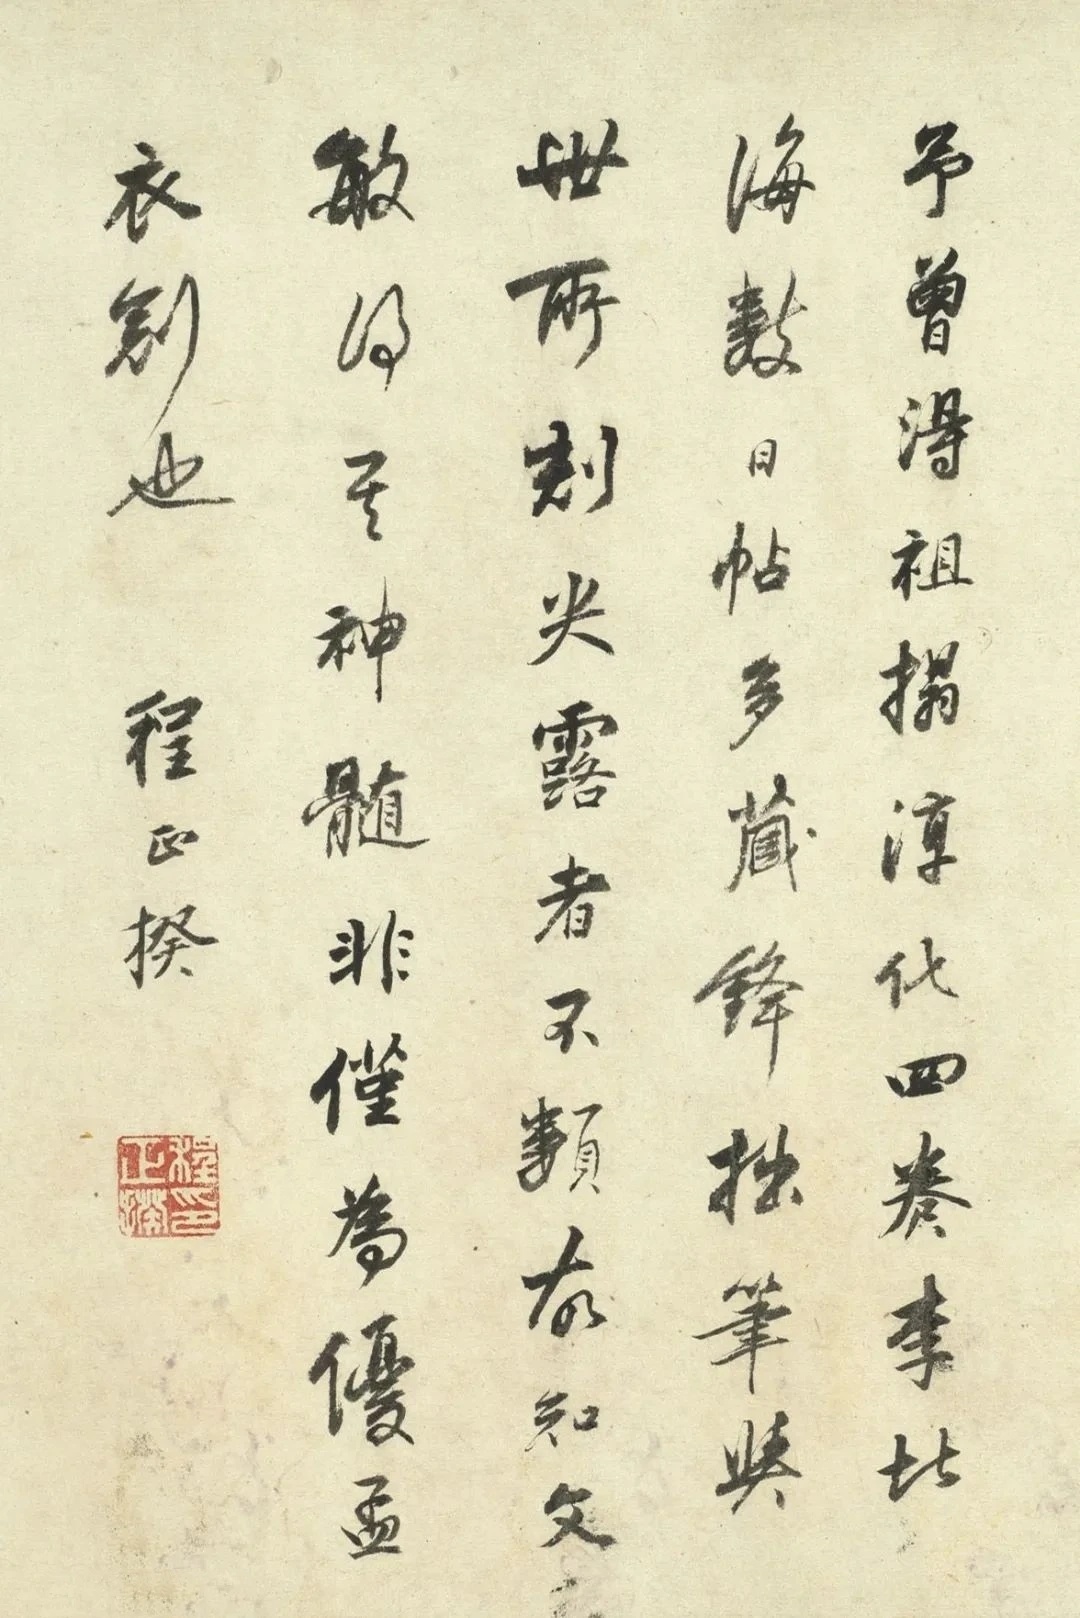 予曾得祖搨淳化四卷李北
海數日帖多藏鋒拙筆與
世所刻尖露者不類故知文
敏得其神髓非僅為優孟
衣剑也
程正揆
程正揆印